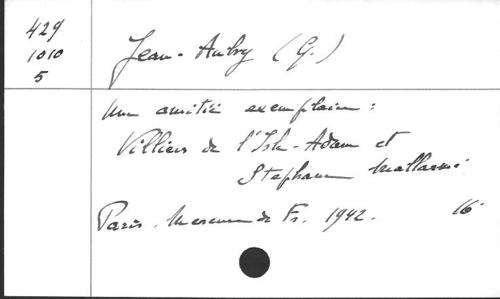 429
1010
5
Jean-Aubry (G.)
Une amitié exemplaire :
Villiers de l'Isle-Adam et
Stéphane Mallarmé.
Paris. Mercure de Fr. 1942. 16